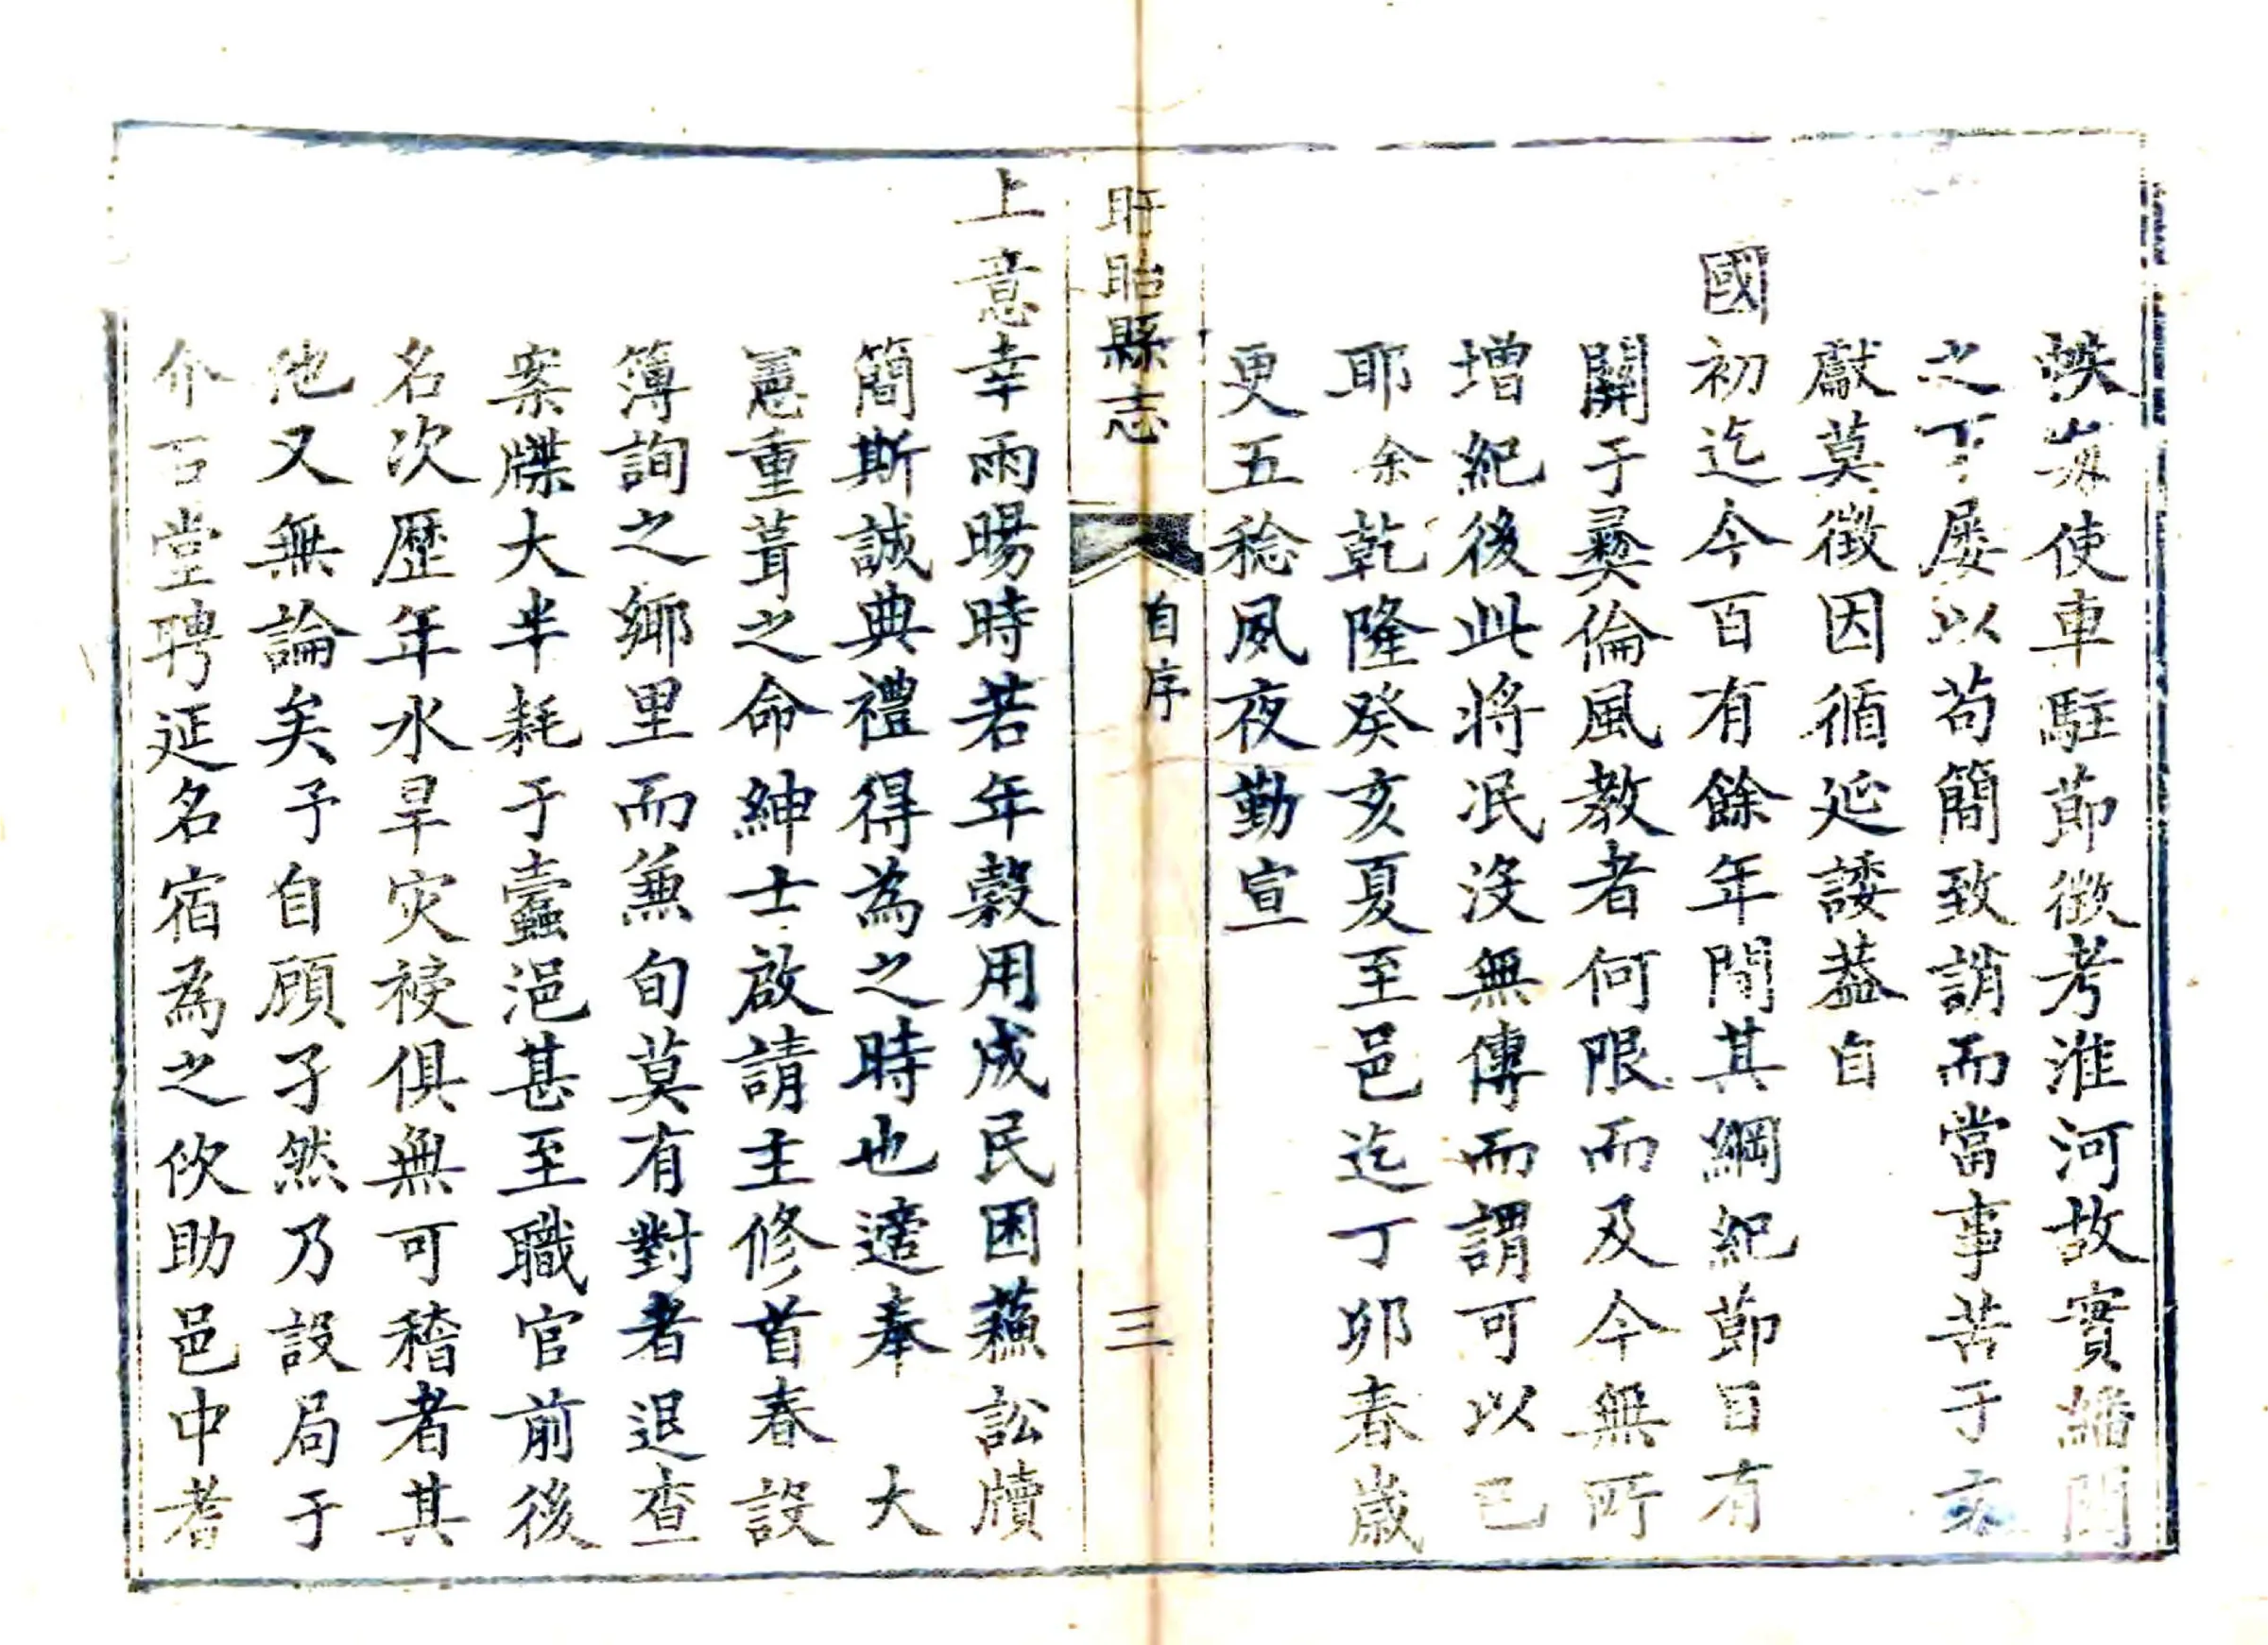 帙每使車駐節徵考淮河故實繙閱
之下屡以苟簡致誚而當事苦于文
獻莫徵因循延諉葢自
國初迄今百有餘年間其綱紀節目有
關于彞倫風教者何限而及今無所
增紀後此將泯没無傳而謂可以已
耶余乾隆癸亥夏至邑迄丁卯春歲
更五稔夙夜勤宣
盱眙縣志
自序
三
上意幸雨暘時若年穀用成民困蘓訟牘
簡斯誠典禮得為之時也適奉大
憲重葺之命紳士啟請主修首春設
簿詢之鄉里而兼旬莫有對者退查
案牒大半耗于蠹浥甚至職官前後
名次歷年水旱灾祲俱無可稽者其
他又無論矣予自顧孑然乃設局于
介石堂聘延名宿為之佽助邑中耆